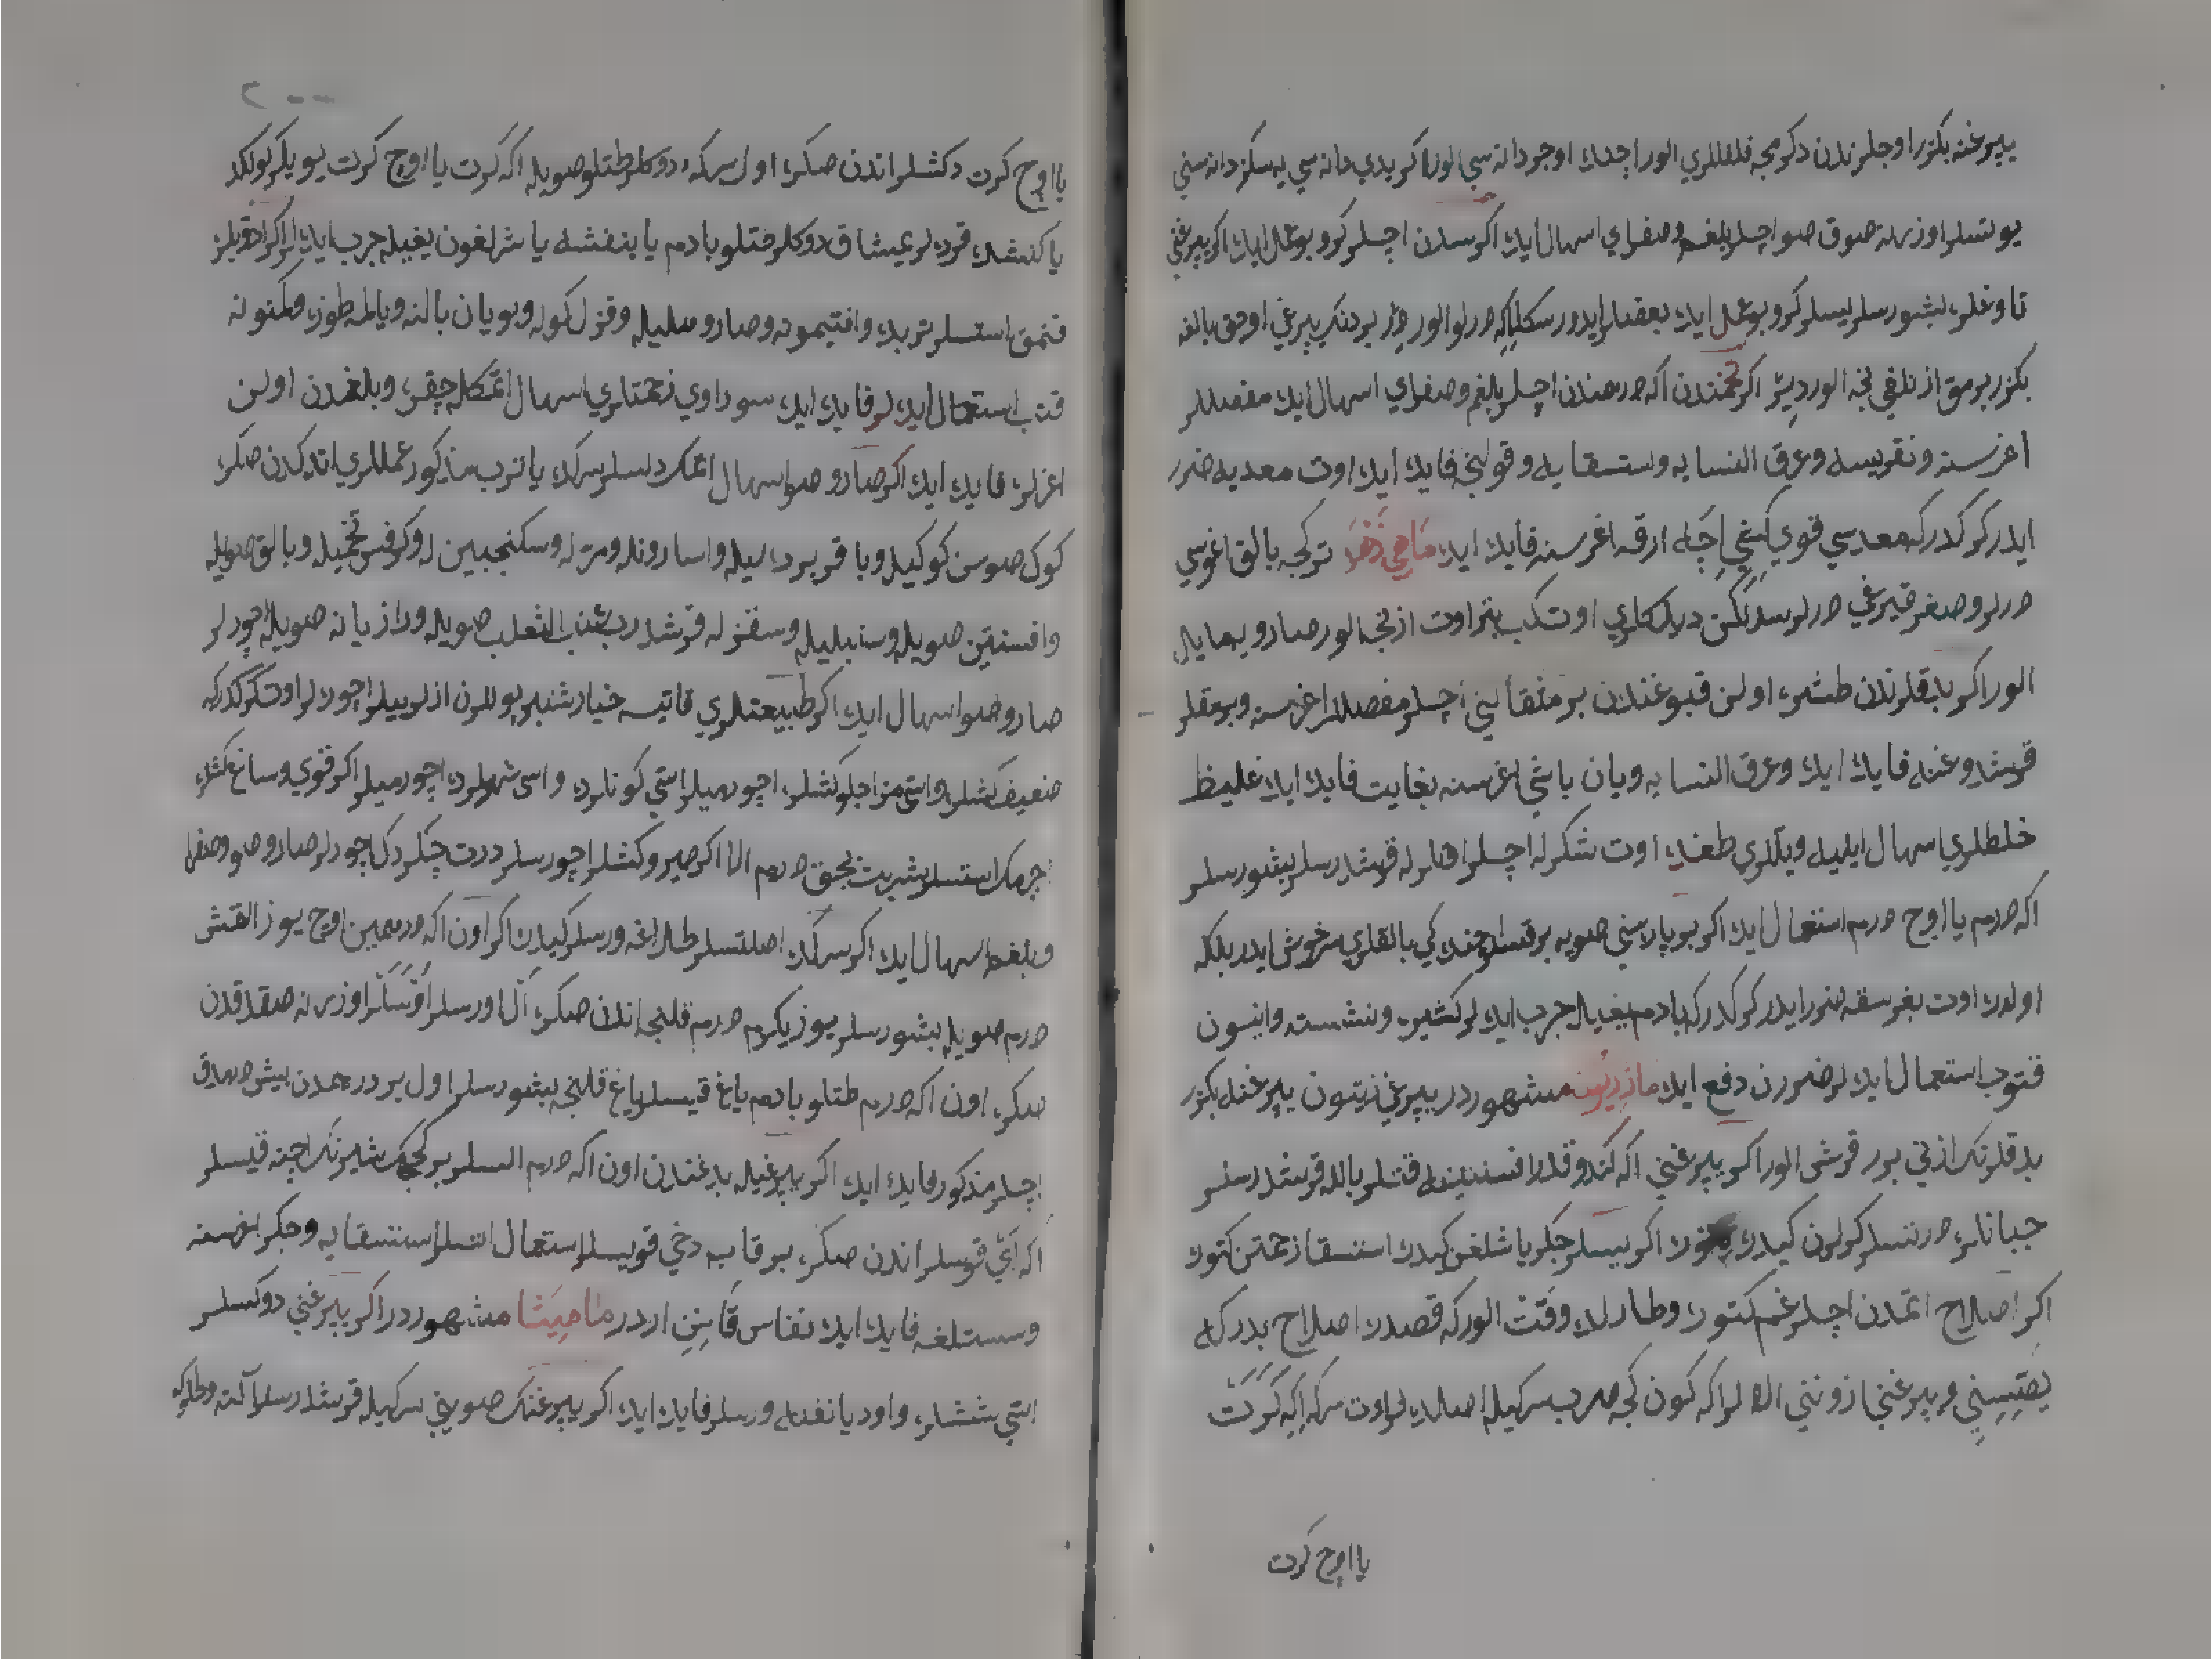 يپرغنه بكزر اوجلرندن دكرمجه فلفللري الور اچندك اوجر دانه سي الور اكر يدي دانه سي يه سكز دانه سني
يوتسلر اوزرنه صوق صو اچلر بلغم وصفراي اسهال ايد اكر سدن اچسلر كرو بو عمل ايد اكر يپرغني
تاوغله بشورسلر يسلر كرو بو عمل ايد بعضلر ايدور سكا ايكه درلو الور بر دنك يپرغي اوجق بالغه
بكزر برمق ازنلغي نجه الور ديز اكر تخمندن اكه درهمندن اچلر بلغم وصفراي اسهال ايد مفصللر
اغرسنه ونقريسه وعرق النسايه واستسقايه وقولنجه فايد ايد اوت معديه ضرر
ايدر كركدركه معدسي قوي كشي اچه ارقه اغرسنه فايد ايد ماهي زهر تركجه بالق اغوسي
درلر وصغر قيرغي درلر سدلكن ديلكلري اوت كب بتر اوت ازنجه الور صارويه مايل
الور اكر بدقلرندن طشره اولن قبوغندن بر مثقالني اچسلر مفصللر اغرسنه وبرمقلر
قرشدوغنه فايد ايد وعرق النسايه ويان باشي اغرسنه بغايت فايد ايد غليظ
خلطلري اسهال ايليه ويللري طغد اوت شكرله اچسلر افتارله قرشدرسلر بشورسلر
اكه درم يا اوج درم استعمال ايد اكر بو پارسني صويه برقسلر اچندكي بالقلري سرخوش ايدر بلكه
اولدر اوت بغرسقه ضرر ايدر كركدركه بادم يغيله چرب ايدلر كشير ونشسته وانيسون
قتوب استعمال ايدلر ضررن دفع ايد مازريون مشهوردر يپرغي زيتون يپرغنه بكزر
بدقلرنك ازني برر قرش الور اكر يپرغني اكه كندو قدر افسنتينه قتلر بالله قرشدرسلر
جبانلره درتسلر كرلرن كيدر اكر يسلر جكر ياشلغن كيدر استسقا زحمتن كتور
اكر اصلاح اتمدن اچلر غم كتور وطارلد وقتن الوركه قصدر اصلاح بدركه
يصيسني و يپرغني ازونني الا لر اكه كون كجه صرب سركيله اصلدلر اوت سركه اكه كرت
يا اوچ كرت
يا اوچ كرت دكشلر اندن صكره اول سركه دوكلر طتلو صويله اكه كرت يا اوچ كرت يويلر كولكد
ياكنشد قردلر يمشاق دوكلر طتلو بادم يا بنفشه يا شرلغون يغيله چرب ايدلر اكر ادقيلر
قتمق استسلر تربد وافتيمونه وصارو هليله وقزل كوله وبويان بالنه ويالمه طوزه ومكنونه
قتب استعمال ايدلر فايد ايد سوداوي زحمتلري اسهال اتمكله چقر وبلغمدن اولن
اغزلر فايد ايد اكر صارو صو اسهال اتمك دلسلر سركد يا ترب مذكور عمللري اتدكدن صكره
كوك صوسن كوكيله وباقر بردسيله واسارونله ومرله وسكنجبين له وكرفس تخميله وبالق صويله
وافسنتين صويله وسنبليله وسقزله قرشدرب عنب الثعلب صويله ورازيانه صويله اچورلر
صارو صو اسهال ايد اكر طبيعتلري قاتيسه خيارشنبر بولرن ازلر ييلر اچورلر اوت كركدركه
ضعيف كشلره واسي مزاجلو كشلره اچورميلر اسي كونلرد واسي شهرلرد اچورميلر اكر قوي وساغ كشلر
اچرمك استسلر شربت بجق درم الا اكر صيرو كشلر اچورسلر درت چكردك اچورلر صارو صو وصفرا
وبلغم اسهال ايد اكر سركد اصلتسلر طلاغه ورسلر كيدر اكر اون اكه درهمين اوچ يوز القش
درم صويله بشورسلر يوز يكرم درم قلنجه اندن صكره ال اورسلر اوسلر اوزرنه صقدقدن
صكره اون اكه درم طتلو بادم ياغ قيسلر ياغ قلنجه بشورسلر اول بر درهمدن بيش درهمدق
اچسلر مذكور فايد ايد اكر يپرغيله بدغندن اون اكه درم السلر بر كجك شيرنك اچنه قيسلر
اكه اي قوسلر اندن صكره بر قابه دخي قويسلر استعمال اتسلر استسقايه وجكر اغرسنه
وسستلغه فايد ايد نفاس قانن اردر ماميثا مشهوردر اكر يپرغني دوكسلر
اسي ششلره واود يانغنه ورسلر فايد ايد اكر يپرغنك صويني سركيله قرشدرسلر آلته وطلركه